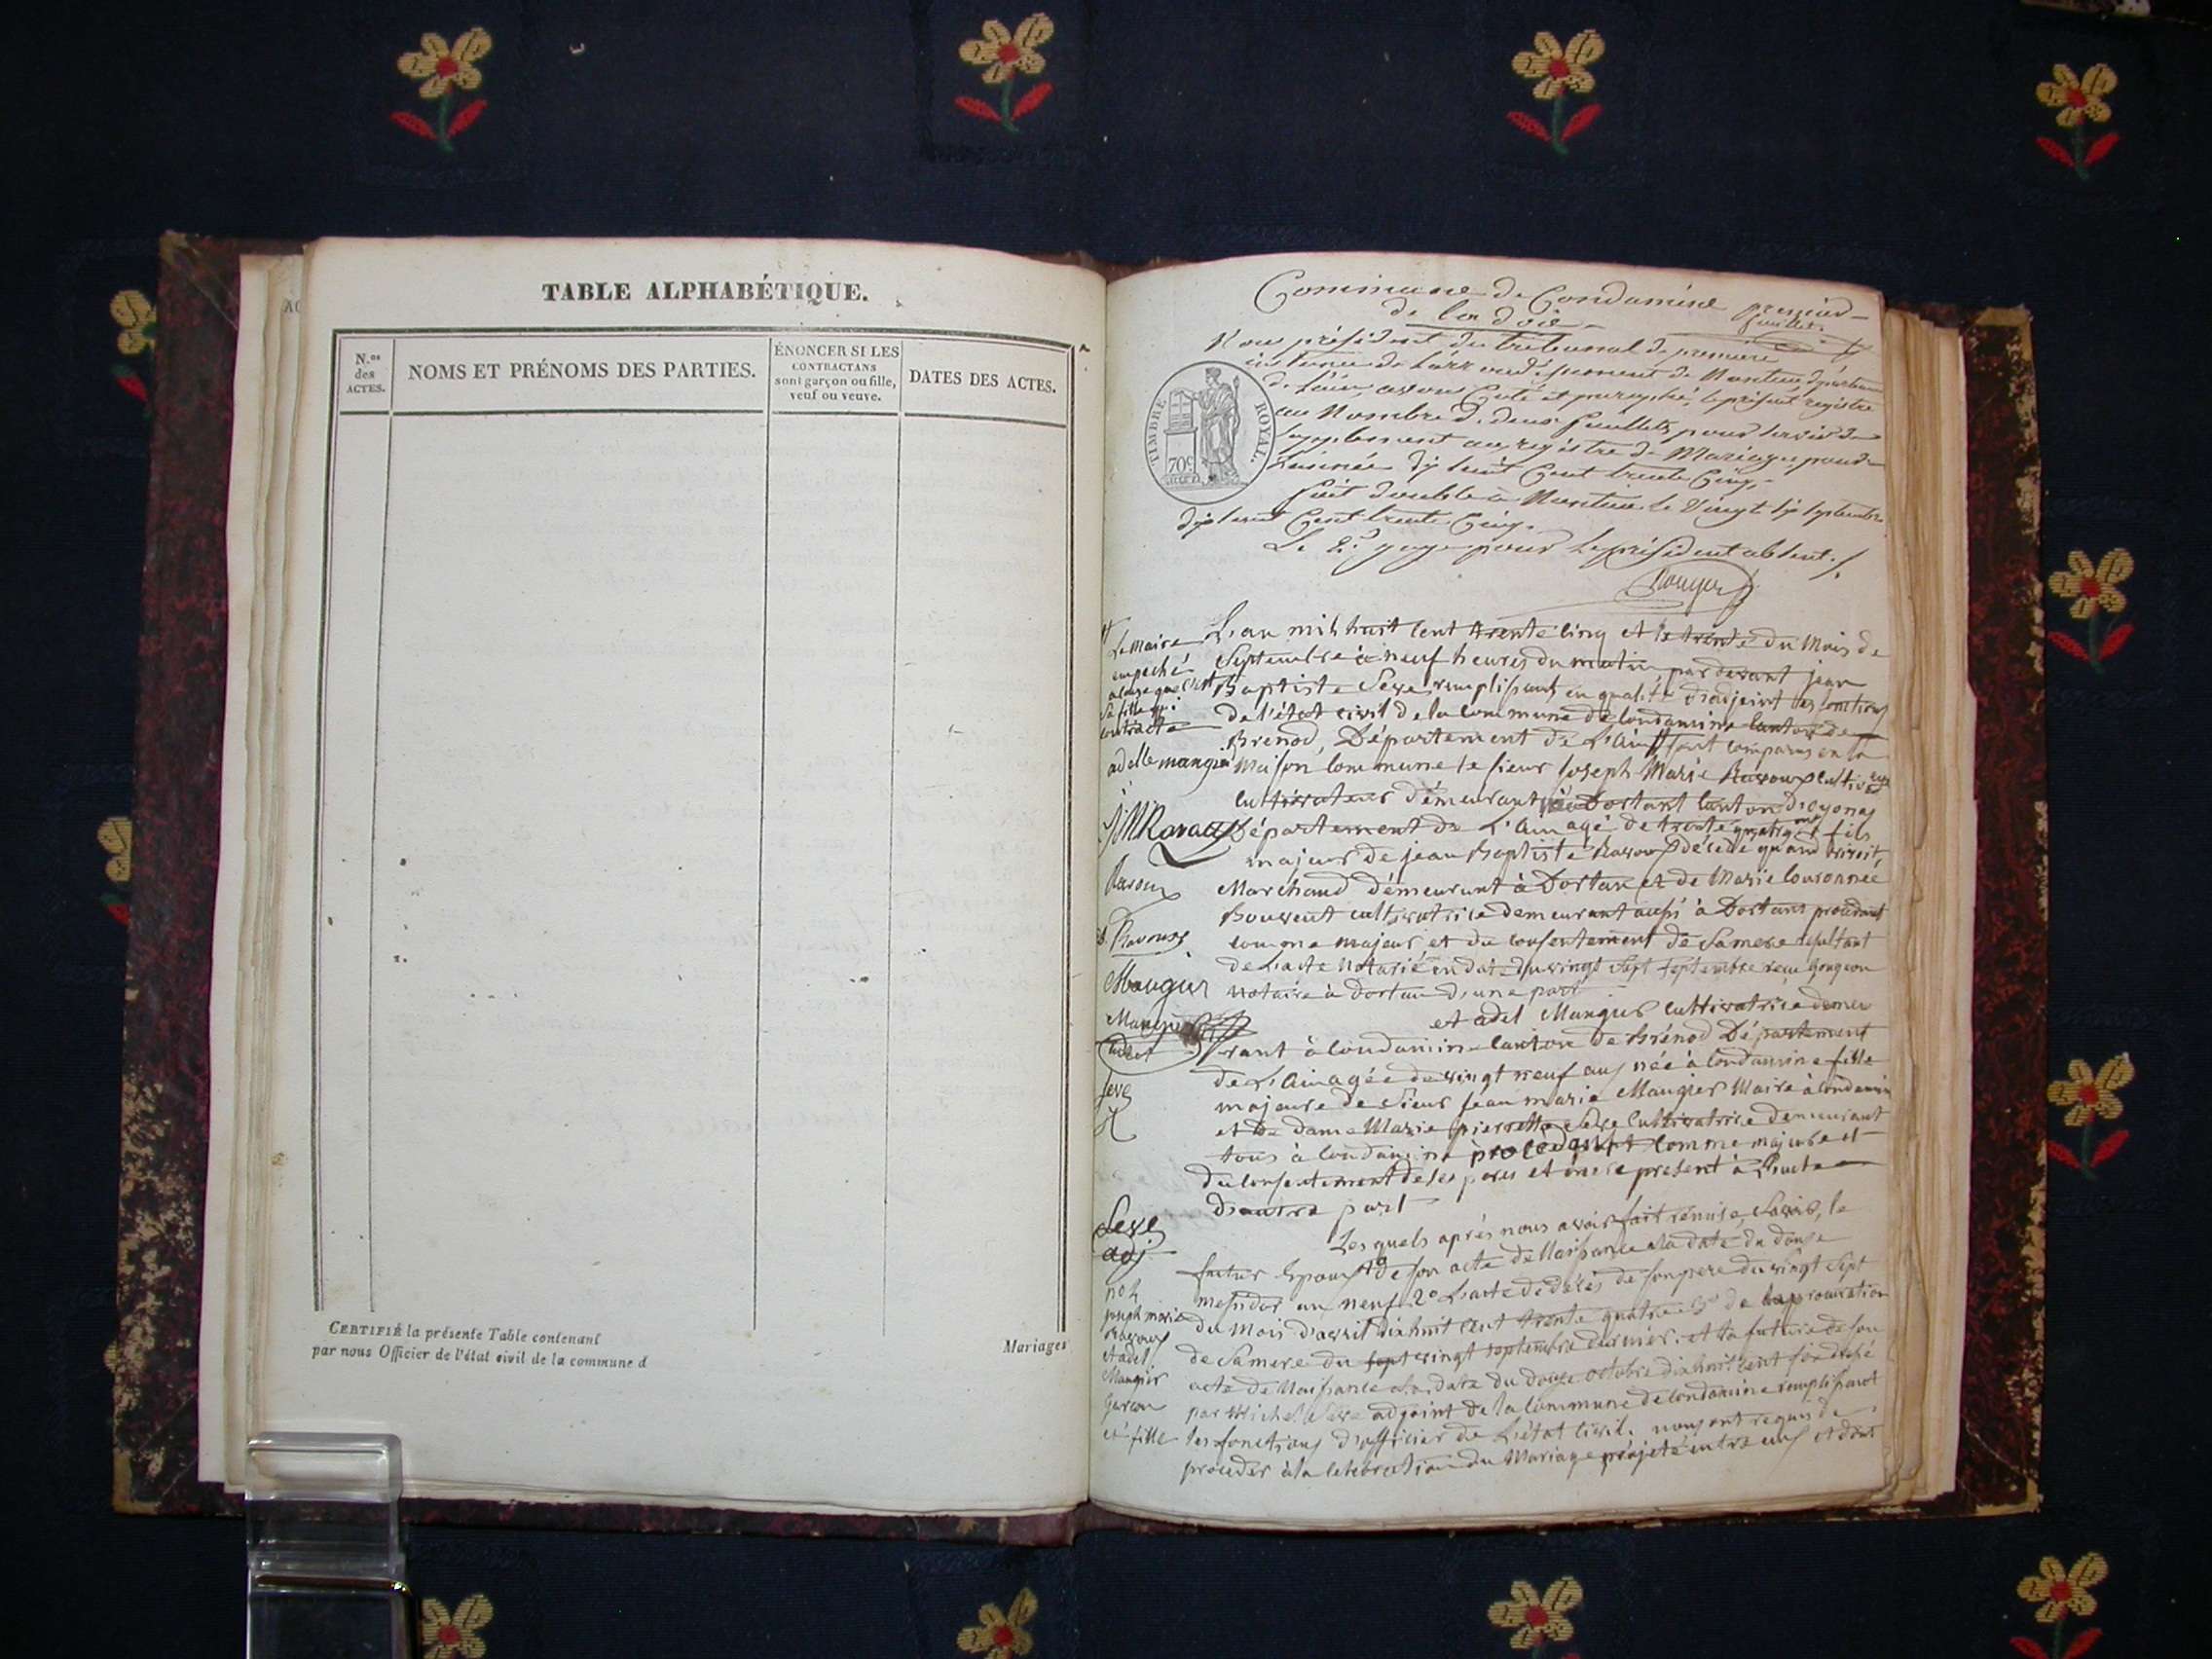 TABLE ALPHABÉTIQUE.
N.os des ACTES.
NOMS ET PRÉNOMS DES PARTIES.
ÉNONCER SI LES CONTRACTANS sont garçon ou fille, veuf ou veuve.
DATES DES ACTES.
CERTIFIÉ la présente Table contenant
par nous Officier de l'état civil de la commune d
Mariages
Commune de Condamine
de la doye
premier
feuillet.
Nous président du tribunal de première
instance de l'arrondissement de Nantua département
de l'ain, avons Coté et paraphé, le présent registre
au Nombre de deux feuillets pour servir de
supplement au registre de Mariage pour
l'année dix huit Cent trente Cinq.
fait double à Nantua le Vingt six septembre
dix huit Cent trente Cinq.
Le 2e juge pour le président absent.
TIMBRE ROYAL.
70c
Le Maire
empeché
a cause que c'est
sa fille qui
contracte
adelle mangier
L'an mil huit cent trente cinq et le trente du Mois de
Septembre à neuf heures du matin, par devant jean
Baptiste Seve remplissant en qualité d'adjoint les fonctions
de l'état civil de la commune de Condamine canton de
Brenod, Département de L'Ain sont comparus en la
Maison commune le sieur Joseph Marie Ravoux cultiv
cultivateur démeurant à Dortant canton d'oyonas
Département de L'Ain agé de trente quatre ans fils
majeur de jean Baptiste Ravoux décédé quand vivoit,
Marchand démeurant à Dortan et de Marie Couronnée
Bouvent cultivatrice demeurant aussi à Dortant procédant
comme majeur et du consentement de sa mere résultant
de l'acte Notarié en date du vingt sept septembre reçu Gougeon
notaire à Dortan d'une part
et adel Mangier cultivatrice demeu
rant à Condamine canton de Brénod Département
de L'Ain agée de vingt neuf ans née à Condamine fille
majeure de Sieur Jean marie Maugier Maire à Condamine
et de dame Marie pierrette Seve Cultivatrice demeurant
tous à Condamine procedant comme majeure et
du consentement de ses pere et mere present à L'acte
d'autre part
Les quels après nous avoir fait rémise, Savoir, le
futur Epoux 1o de son acte de Naissance à la date du douze
messidor an neuf 2o L'acte de décès de son pere du vingt sept
du Mois d'avril dix huit cent trente quatre 3o de la procuration
de Sa mere du vingt septembre dernier. et la future de son
acte de Naissance à la date du douze octobre dix huit cent six
par Michel Seve adjoint de la commune de Condamine remplissant
les fonctions d'officier de L'état Civil. nous ont requis de
proceder à la celebration du Mariage projeté entre eux et dont
JM Ravoux
Ravoux
Ravoux
Maugier
Mangier
Seve
Seve
adj
no 1
joseph marie
Ravoux
et adel
Mangier
Garçon
et fille